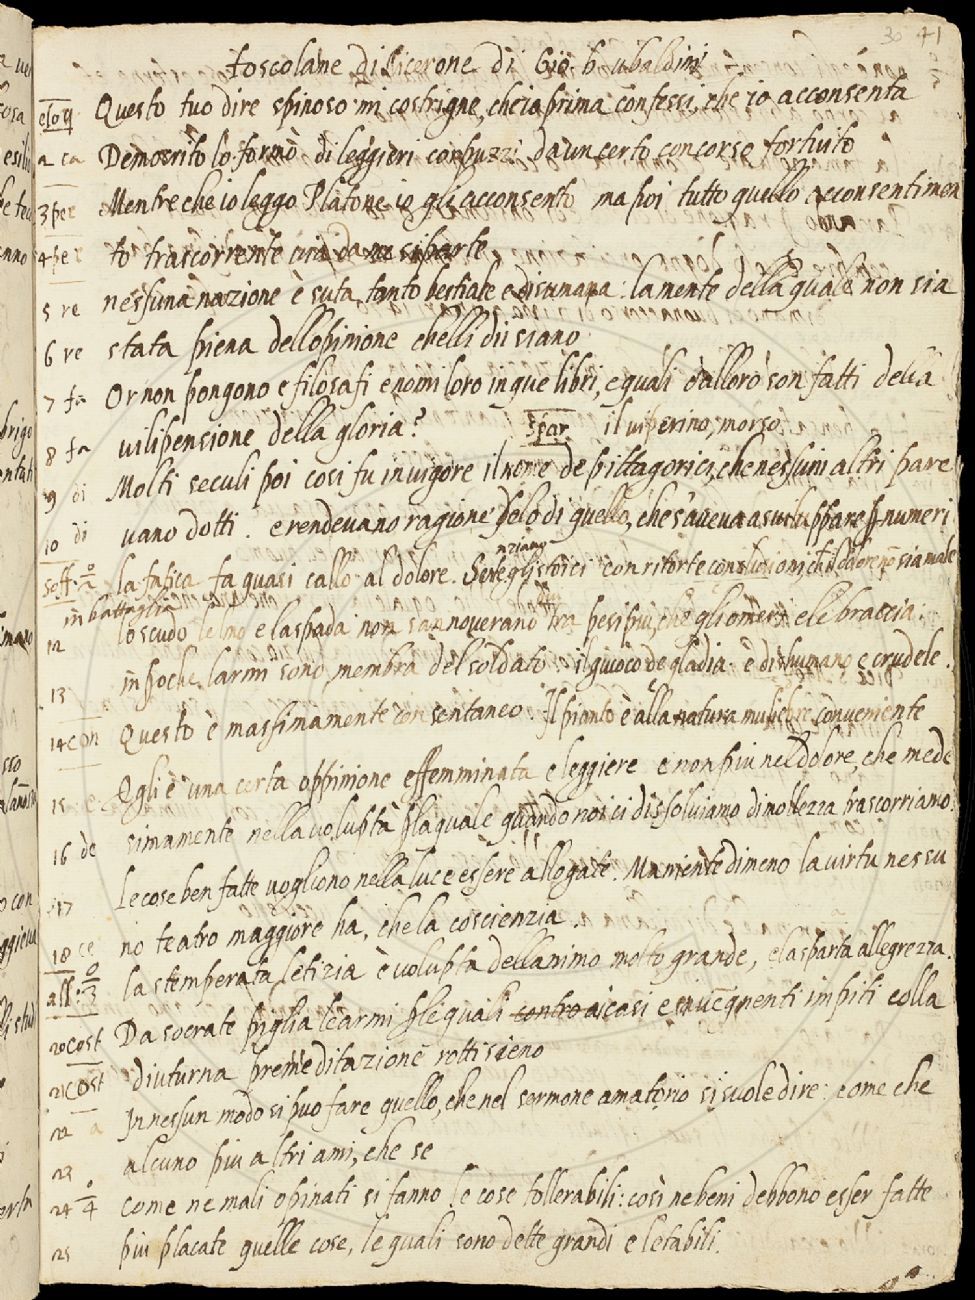 30 41
toscolane di Cicerone di Giō b ubaldini
eloq Questo tuo dire spinoso mi costrigne, che ia prima confessi, che io acconsenta
2 ca Democrito lo formò di leggieri corpuzzi da un certo concorso fortuito
3 per Mentre che io leggo Platone io gli acconsento ma poi tutto quello acconsentimen
4 per to trascorrente via si parte
5 re nessuna nazione è suta tanto bestiale e disumana: la mente della quale non sia
6 re stata piena dell opinione chelli dii siano
7 fa Or non pongono e filosafi e nomi loro in que libri, e quali dalloro son fatti della
8 fa vilipensione della gloria? spar. il viperino, morso.
9 di Molti seculi poi cosi fu in vigore il nome de pittagorici, che nessuni altri pare
10 di vano dotti. e rendevano ragione pelo di quello, che s'aveva a sviluppare p numeri
la fatica fa quasi callo al dolore. con ritorte
in battaglia
12 lo scudo lelmo e la spada non sannoverano tra pesi più, che gliomeri e le braccia.
13 inpoche larmi sono membra del soldato. il giuoco de gladia. è dishumano e crudele.
14 con Questo è massimamente consentaneo. Il pianto è alla natura muliebre conveniente
15 Egli è una certa oppinione effemminata e leggiere e non piu nel dolore, che mede
16 de simamente nella voluptà p la quale quando noi ci dissolviamo di mollezza trascorriamo.
17 le cose ben fatte vogliono nella luce essere allogate. Ma niente dimeno la virtu nessu
18 ce no teatro maggiore ha, che la coscienzia.
all. o/3 la stemperata letizia è volupta dellanimo molto grande, e la sparta allegrezza.
20 cost Da socrate piglia le armi p le quali contro a i casi e impiti colla
21 cost diuturna premeditazione rotti sieno
22 a In nessun modo si puo fare quello, che nel sermone amatorio si suole dire: come che
23 alcuno piu altri ami, che se
24 o/4 come ne mali opinati si fanno le cose tollerabili: così ne beni debbono esser fatte
25 piu placate quelle cose, le quali sono dette grandi e letabili.